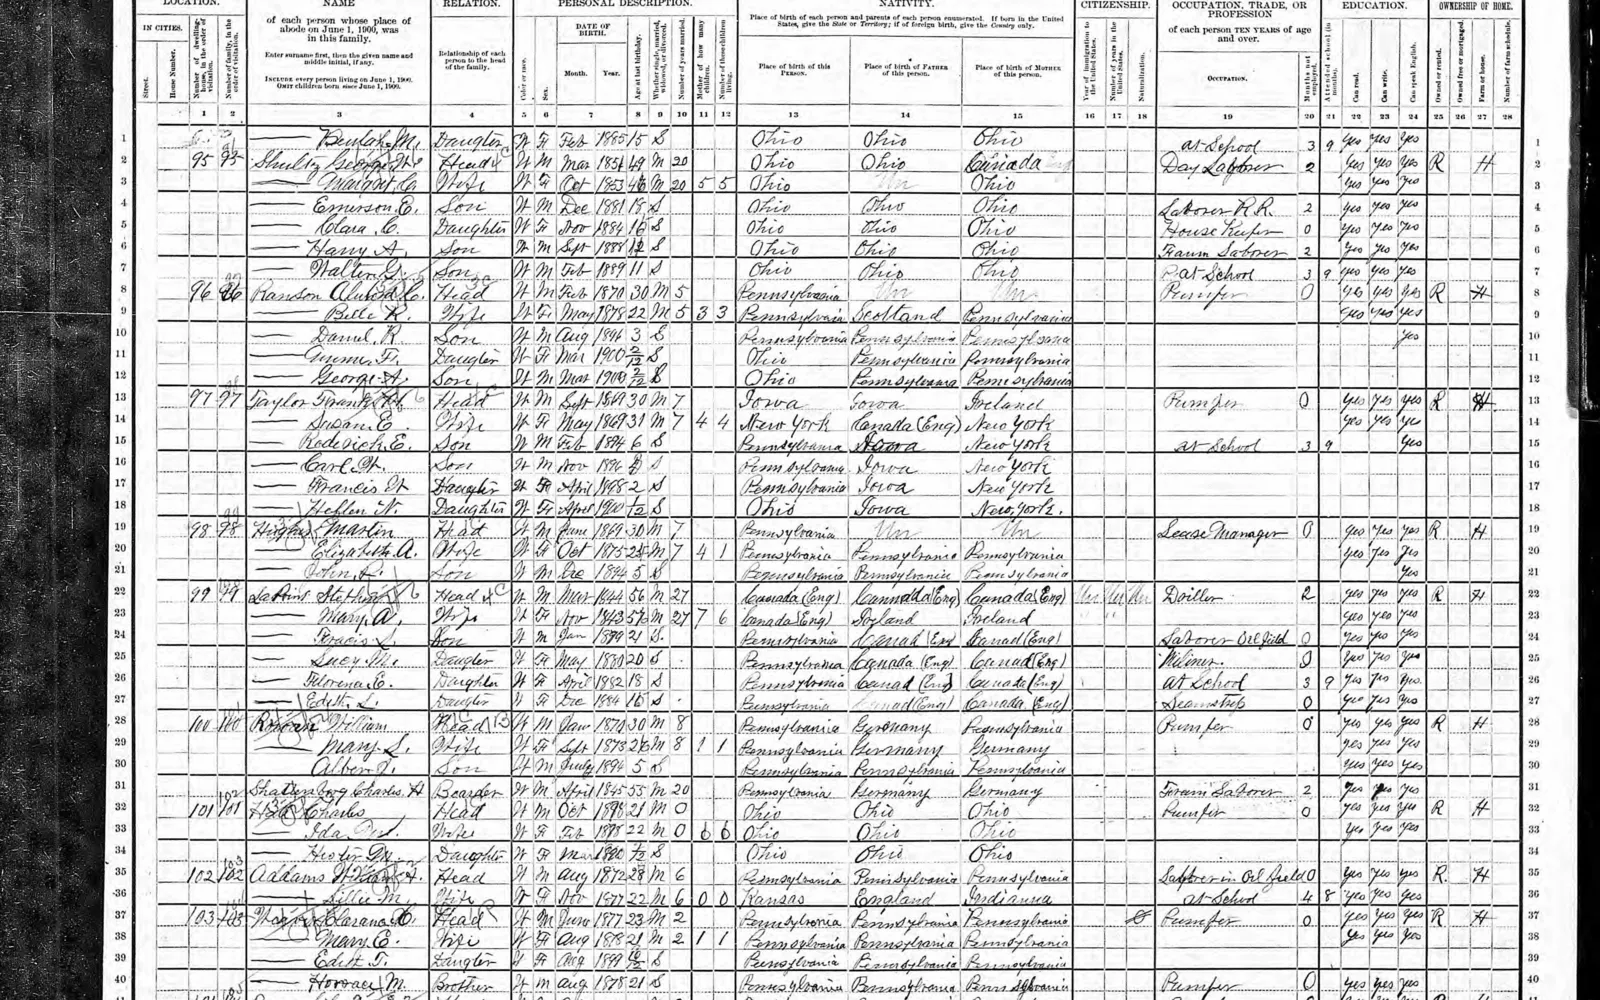 LOCATION. NAME RELATION. PERSONAL DESCRIPTION. NATIVITY. CITIZENSHIP. OCCUPATION, TRADE, OR PROFESSION EDUCATION. OWNERSHIP OF HOME.
IN CITIES. of each person whose place of abode on June 1, 1900, was in this family. Relationship of each person to the head of the family. DATE OF BIRTH. Place of birth of each person and parents of each person enumerated. If born in the United States, give the State or Territory; if of foreign birth, give the Country only. of each person TEN YEARS of age and over.
Enter surname first, then the given name and middle initial, if any.
INCLUDE every person living on June 1, 1900. OMIT children born since June 1, 1900.
Street. House Number. Month. Year. Place of birth of this PERSON. Place of birth of FATHER of this person. Place of birth of MOTHER of this person. OCCUPATION.
1 2 3 4 5 6 7 8 9 10 11 12 13 14 15 16 17 18 19 20 21 22 23 24 25 26 27 28
1 Beulah M. Daughter W F Feb 1885 15 S Ohio Ohio Ohio at School 3 9 yes yes yes 1
2 95 95 Shultz George Head W M Mar 49 M 20 Ohio Ohio Canada Day Laborer 2 yes yes yes R H 2
3 Margaret C. Wife W F Oct 1853 46 M 20 5 5 Ohio Un Ohio yes yes yes 3
4 Emerson E. Son W M Dec 1881 18 S Ohio Ohio Ohio Laborer R.R. 2 yes yes yes 4
5 Clara C. Daughter W F Nov 1884 15 S Ohio Ohio Ohio House Keeper 0 yes yes yes 5
6 Harry A. Son W M Sept 1888 S Ohio Ohio Ohio Farm Laborer 2 yes yes yes 6
7 Walter G. Son W M Feb 1889 11 S Ohio Ohio Ohio at School 3 9 yes yes yes 7
8 96 96 Ranson Head W M Feb 1870 30 M 5 Pennsylvania Un Un Pumper 0 yes yes yes R H 8
9 Belle R. Wife W F May 1878 22 M 5 3 3 Pennsylvania Scotland Pennsylvania yes yes yes 9
10 Daniel R Son W M Aug 1896 3 S Pennsylvania Pennsylvania Pennsylvania yes 10
11 F. Daughter W F Mar 1900 2/12 S Ohio Pennsylvania Pennsylvania 11
12 George A. Son W M Mar 1900 2/12 S Ohio Pennsylvania Pennsylvania 12
13 97 97 Taylor Frank Head W M Sept 1869 30 M 7 Iowa Iowa Ireland Pumper 0 yes yes yes R H 13
14 Susan E. Wife W F May 1869 31 M 7 4 4 New York Canada (Eng) New York yes yes yes 14
15 Roderick E. Son W M Feb 1894 6 S Pennsylvania Iowa New York at School 3 9 yes 15
16 Carl W. Son W M Nov 1896 S Pennsylvania Iowa New York 16
17 Francis W Daughter W F April 1898 2 S Pennsylvania Iowa New York 17
18 Hellen N. Daughter W F April 1900 1/12 S Ohio Iowa New York. 18
19 98 98 Hughes Martin Head W M June 1869 30 M 7 Pennsylvania Un Un Lease Manager 0 yes yes yes R H 19
20 Elizabeth A. Wife W F Oct 1875 M 7 4 1 Pennsylvania Pennsylvania Pennsylvania yes yes yes 20
21 John L. Son W M Dec 1894 5 S Pennsylvania Pennsylvania Pennsylvania yes 21
22 99 99 Head W M Mar 1844 56 M 27 Canada (Eng) Cannada (Eng) Canada (Eng) Un Un Un Driller 2 yes yes yes R H 22
23 Mary A. Wife W F Nov 1843 56 M 27 7 6 Canada (Eng) Ireland Ireland yes yes yes 23
24 Son W M Jan 1879 21 S. Pennsylvania Canad (Eng) Canad (Eng) Laborer Oil field 0 yes yes yes 24
25 Lucy M. Daughter W F May 1880 20 S Pennsylvania Canada (Eng) Canad (Eng) Miliner. 0 yes yes yes 25
26 Florence E. Daughter W F April 1882 18 S Pennsylvania Canad (Eng) Canada (Eng) at School 3 9 yes yes yes. 26
27 Edith L. Daughter W F Dec 1884 15 S Pennsylvania Canad (Eng) Canada (Eng) 0 yes yes yes 27
28 100 100 William Head W M Jan 1870 30 M 8 Pennsylvania Germany Pennsylvania Pumper 0 yes yes yes R H 28
29 Mary L. Wife W F Sept 1873 26 M 8 1 1 Pennsylvania Germany Germany yes yes yes 29
30 Albert J. Son W M July 1894 5 S Pennsylvania Pennsylvania Pennsylvania yes yes yes 30
31 Charles H Boarder W M April 1845 55 M 20 Pennsylvania Germany Germany Farm Laborer 2 yes yes yes 31
32 101 101 Charles Head W M Oct 1878 21 M 0 Ohio Ohio Ohio Pumper 0 yes yes yes R H 32
33 Ida Wife W F Feb 1878 22 M 0 6 6 Ohio Ohio Ohio yes yes yes 33
34 Hester M. Daughter W F Mar 1900 S Ohio Ohio Ohio 34
35 102 102 Addams William Head W M Aug 1872 28 M 6 Pennsylvania Pennsylvania Pennsylvania Laborer in Oil field 0 yes yes yes R. H 35
36 Lillie M. Wife W F Nov 1877 22 M 6 0 0 Kansas England Indianna at School 4 8 yes yes yes 36
37 103 103 Clarance Head W M June 1877 23 M 2 Pennsylvania Pennsylvania Pennsylvania Pumper 0 yes yes yes R H 37
38 Mary E. Wife W F Aug 1878 21 M 2 1 1 Pennsylvania Pennsylvania Pennsylvania yes yes yes 38
39 Edith F. Daughter W F Aug 1899 S Pennsylvania Pennsylvania Pennsylvania 39
40 Horace M. Brother W M Aug 1878 21 S Pennsylvania Pennsylvania Pennsylvania Pumper 0 yes yes yes 40